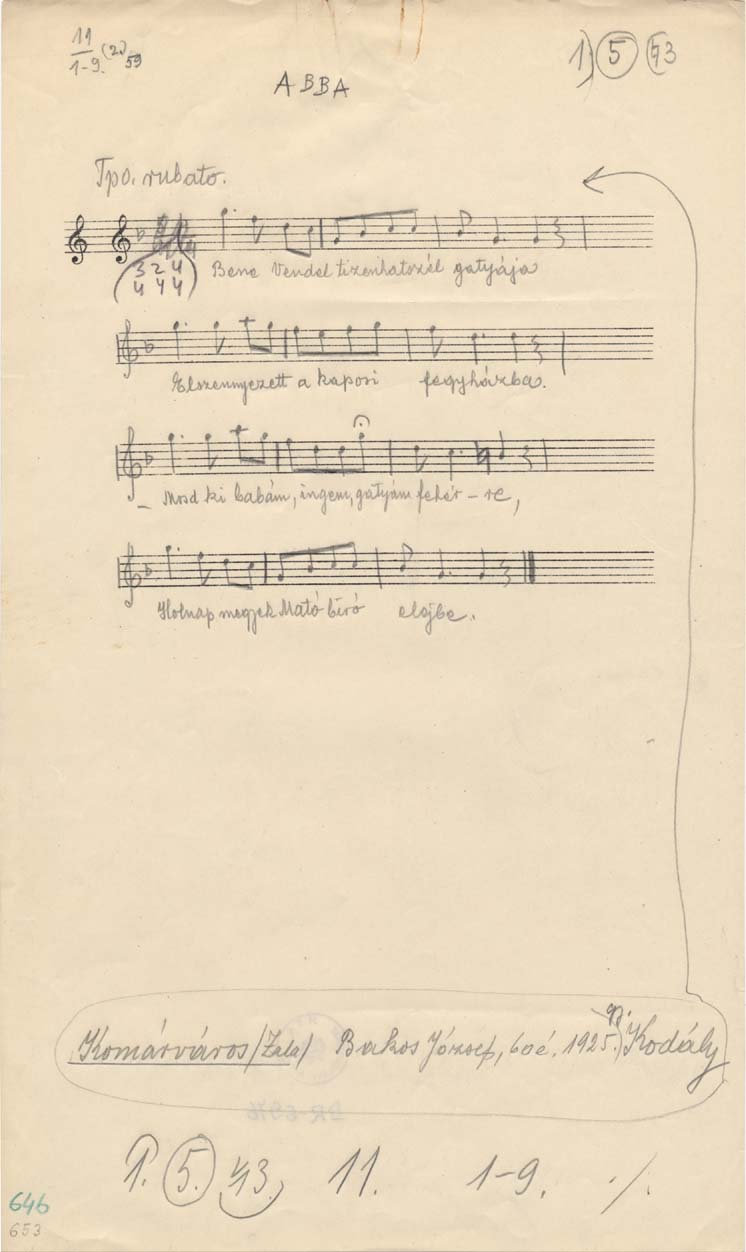 11
1-9. (2.) 59
1) 5 ♭3
ABBA
Tpo. rubato.
3 2 4
4 4 4
Bene Vendel tizenhatszél gatyája
Elszennyezett a kapori fegyházba.
– Mosd ki babám, ingem, gatyám fehér – re,
Holnap megyek Mató bíró elejbe.
Komárváros /Zala/ Bakos József, 60 é. 1925. Kodály
1. 5. ♭3. 11. 1-9. ·/.
646
653